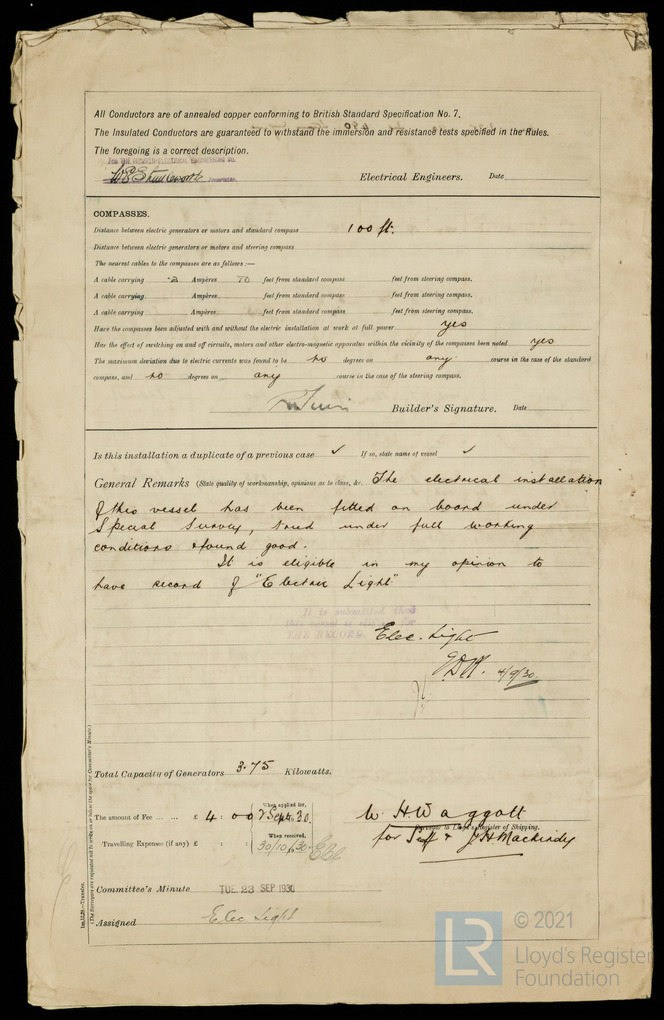 All Conductors are of annealed copper conforming to British Standard Specification No. 7.
The Insulated Conductors are guaranteed to withstand the immersion and resistance tests specified in the Rules.
The foregoing is a correct description.
Electrical Engineers. Date
COMPASSES.
Distance between electric generators or motors and standard compass 100 ft.
Distance between electric generators or motors and steering compass
The nearest cables to the compasses are as follows :—
A cable carrying ·2 Ampères 70 feet from standard compass feet from steering compass.
A cable carrying Ampères feet from standard compass feet from steering compass.
A cable carrying Ampères feet from standard compass feet from steering compass.
Have the compasses been adjusted with and without the electric installation at work at full power yes
Has the effect of switching on and off circuits, motors and other electro-magnetic apparatus within the vicinity of the compasses been noted yes
The maximum deviation due to electric currents was found to be no degrees on any course in the case of the standard
compass, and no degrees on any course in the case of the steering compass.
Builder's Signature. Date
Is this installation a duplicate of a previous case ✓ If so, state name of vessel ✓
General Remarks (State quality of workmanship, opinions as to class, &c. The electrical installation
of this vessel has been fitted on board under
Special Survey, tried under full working
conditions & found good.
It is eligible in my opinion to
have record of "Electric Light"
It is submitted that
this vessel is eligible for
THE RECORD.
Elec. Light
4/9/30.
Total Capacity of Generators 3·75 Kilowatts.
The amount of Fee ... ... £ 4 : 0 0
When applied for,
2 Sept. 30.
Travelling Expenses (if any) £ : :
When received,
30/10/30
W. H. Waggott
Surveyor to Lloyd's Register of Shipping.
for Self & J H Mackindy
Committee's Minute TUE. 23 SEP 1930
Assigned Elec Light
1m,12.28.—Transfer.
(The Surveyors are requested not to write on or below the space for Committee's Minute.)
LR
© 2021
Lloyd's Register
Foundation